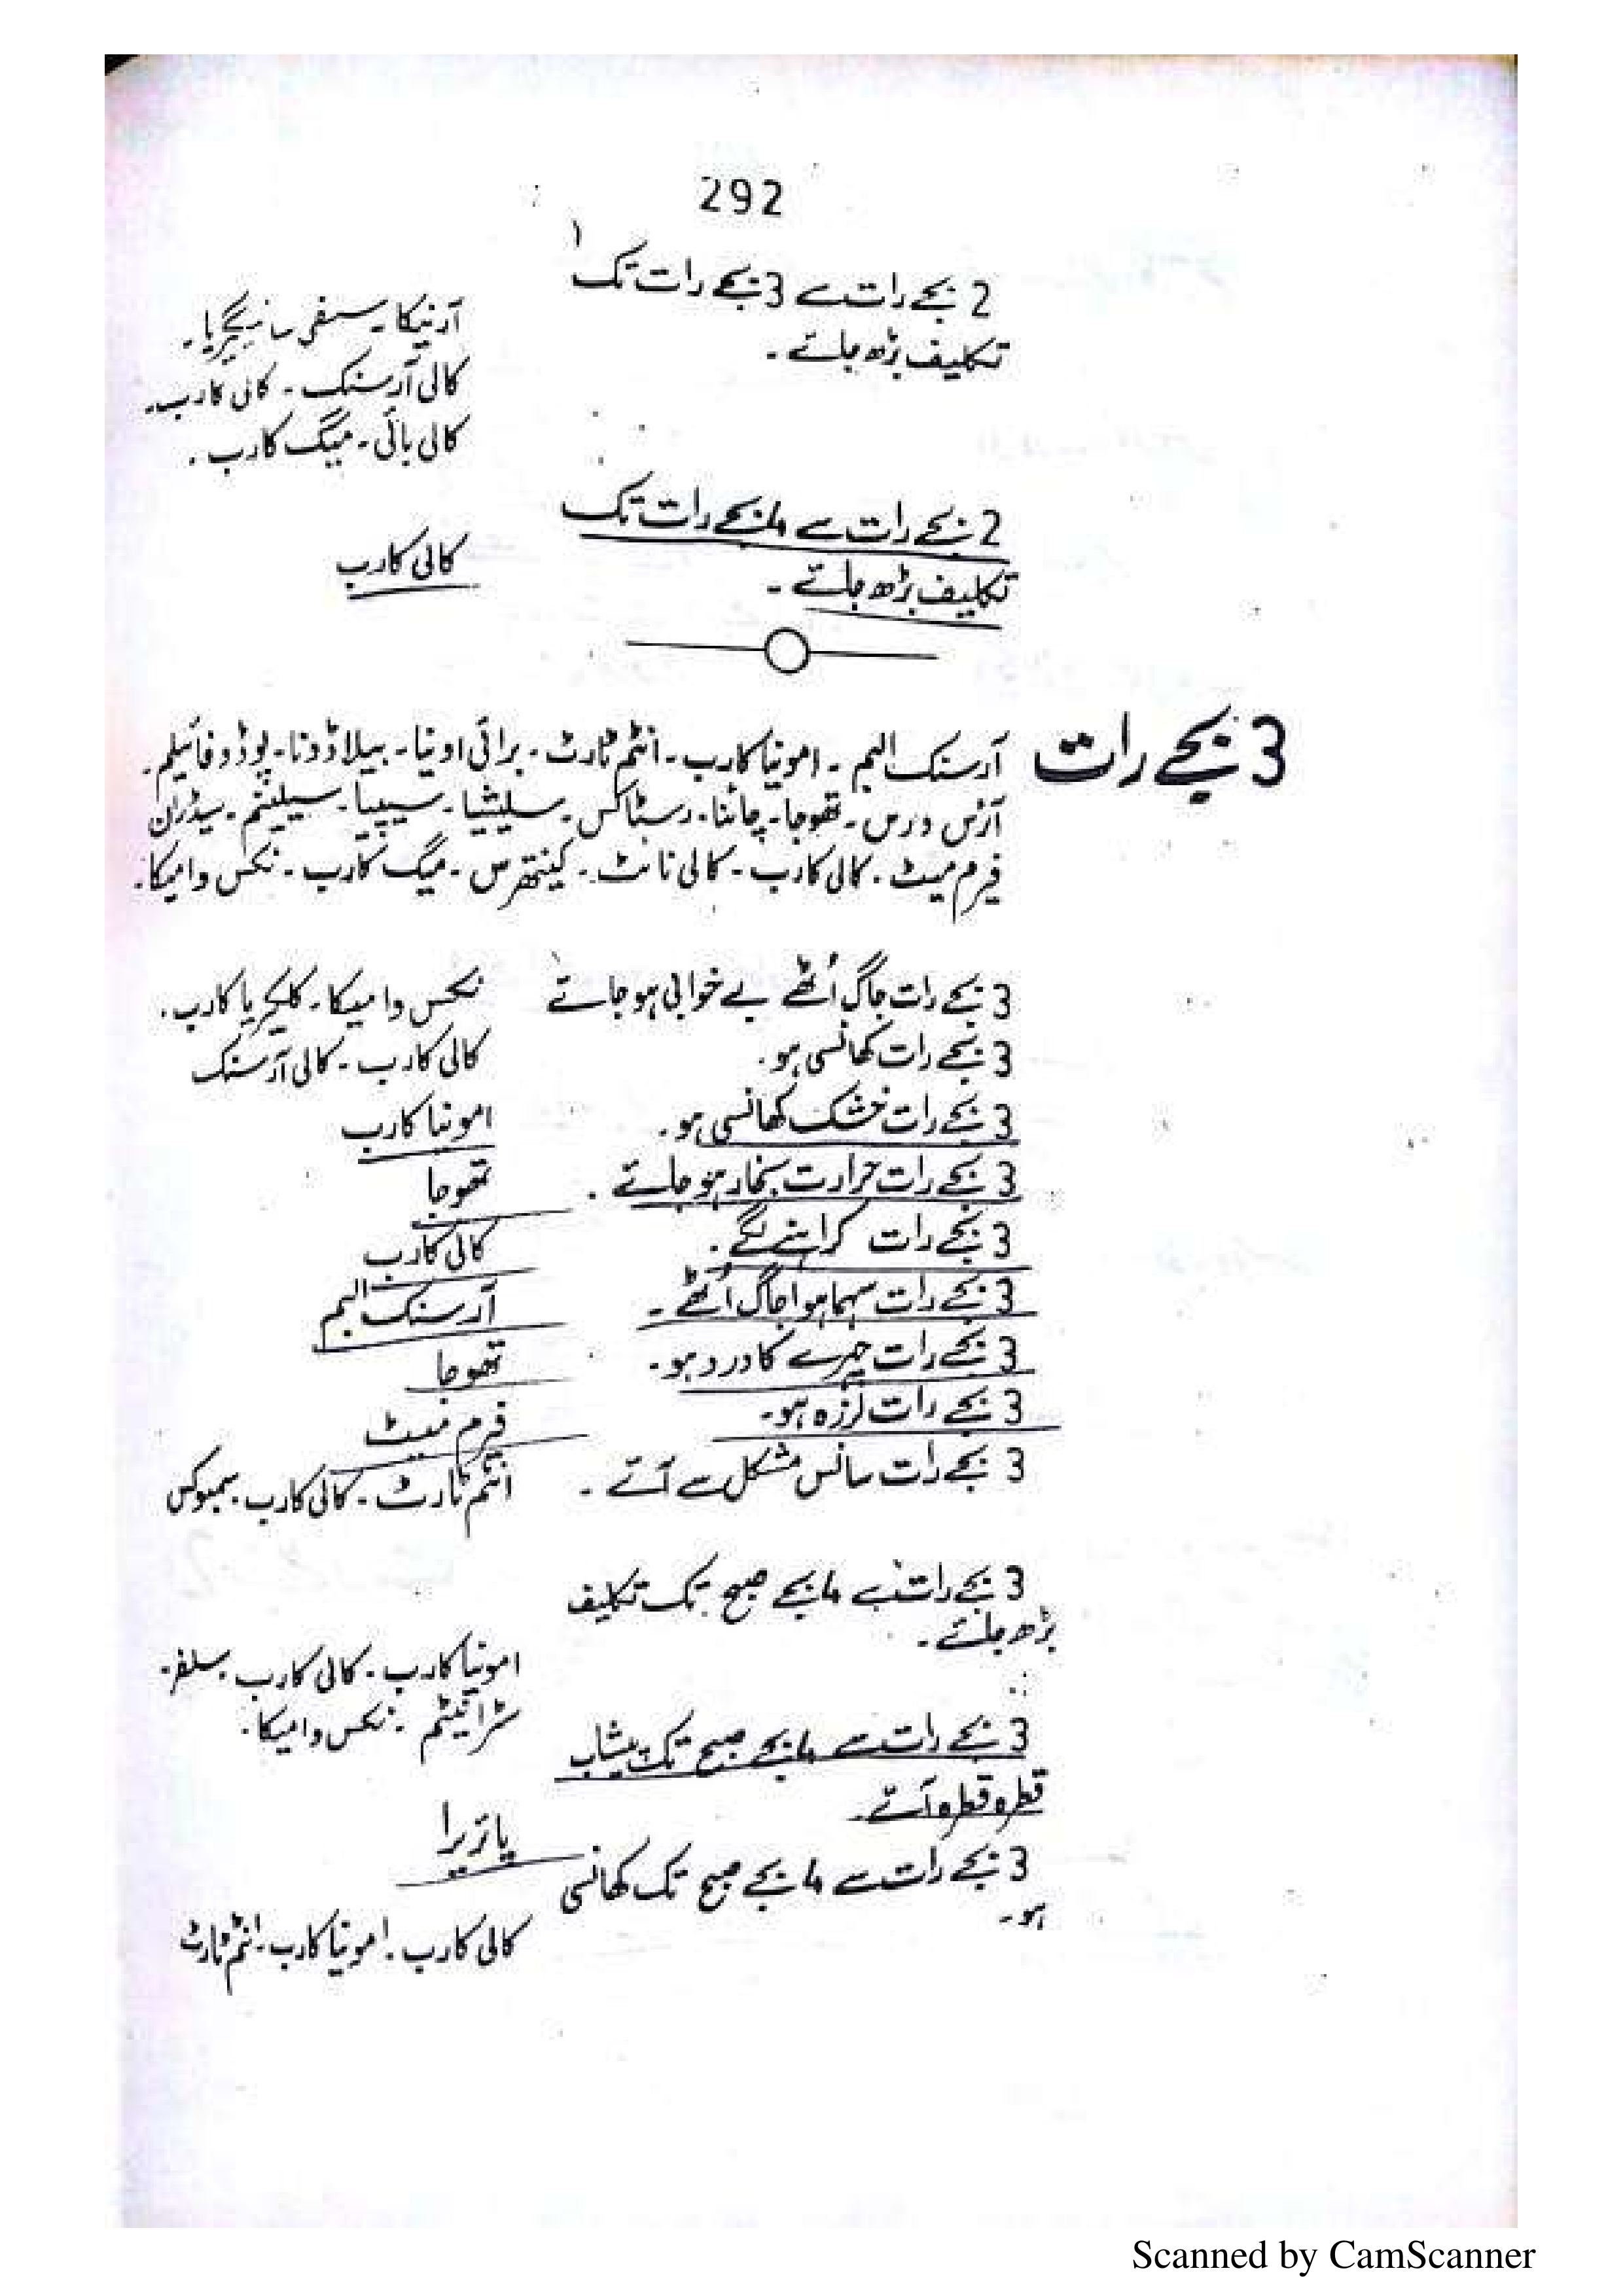 292
2 بجے رات سے 3 بجے رات تک
تکلیف بڑھ جائے ۔
آرنیکا ۔
کالی آرسنک ۔ کالی کارب ۔
کالی بائی ۔ میگ کارب ۔
2 بجے رات سے 4 بجے رات تک
تکلیف بڑھ جائے ۔
کالی کارب
3 بجے رات
آرسنک البم ۔ امونیا کارب ۔ انٹم ٹارٹ ۔ برائی اونیا ۔ بیلاڈونا ۔ پوڈوفائیلم ۔
آئرس ورس ۔ تھوجا ۔ چائنا ۔ رسٹاکس ۔ سلیشیا ۔ سیپیا ۔ سیلینیم ۔ سیڈران
فیرم میٹ ۔ کالی کارب ۔ کالی نائٹ ۔ کینتھرس ۔ میگ کارب ۔ نکس وامیکا ۔
3 بجے رات جاگ اُٹھے بے خوابی ہو جائے نکس وامیکا ۔ کلکیریا کارب ۔
3 بجے رات کھانسی ہو ۔ کالی کارب ۔ کالی آرسنک
3 بجے رات خشک کھانسی ہو ۔ امونیا کارب
3 بجے رات حرارت بخار ہو جائے ۔ تھوجا
3 بجے رات کراہنے لگے ۔ کالی کارب
3 بجے رات سہما ہوا جاگ اُٹھے ۔ آرسنک البم
3 بجے رات چہرے کا درد ہو ۔ تھوجا
3 بجے رات لرزہ ہو ۔ فیرم میٹ
3 بجے رات سانس مشکل سے آئے ۔ انٹم ٹارٹ ۔ کالی کارب ۔ سمبوکس
3 بجے رات سے 4 بجے صبح تک تکلیف
بڑھ جائے ۔
امونیا کارب ۔ کالی کارب ۔ سلفر ۔
نکس وامیکا ۔
3 بجے رات سے 4 بجے صبح تک پیشاب
قطرہ قطرہ آئے ۔
پائریرا
3 بجے رات سے 4 بجے صبح تک کھانسی
ہو ۔
کالی کارب ۔ امونیا کارب ۔ انٹم ٹارٹ
Scanned by CamScanner